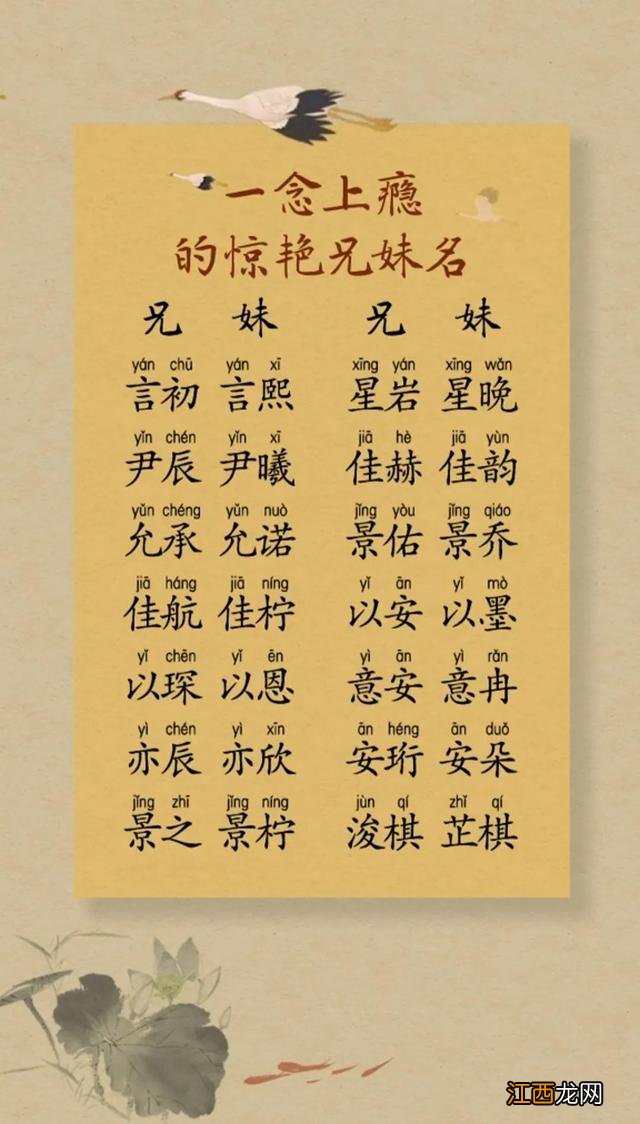 一念上瘾
的惊艳兄妹名
兄 妹 兄 妹
yán chū yán xī xīng yán xīng wǎn
言初 言熙 星岩 星晚
yǐn chén yǐn xī jiā hè jiā yùn
尹辰 尹曦 佳赫 佳韵
yǔn chéng yǔn nuò jǐng yòu jǐng qiáo
允承 允诺 景佑 景乔
jiā háng jiā níng yǐ ān yǐ mò
佳航 佳柠 以安 以墨
yǐ chēn yǐ ēn yì ān yì rǎn
以琛 以恩 意安 意冉
yì chén yì xīn ān héng ān duǒ
亦辰 亦欣 安珩 安朵
jǐng zhī jǐng níng jùn qí zhǐ qí
景之 景柠 浚棋 芷棋
江西龙网